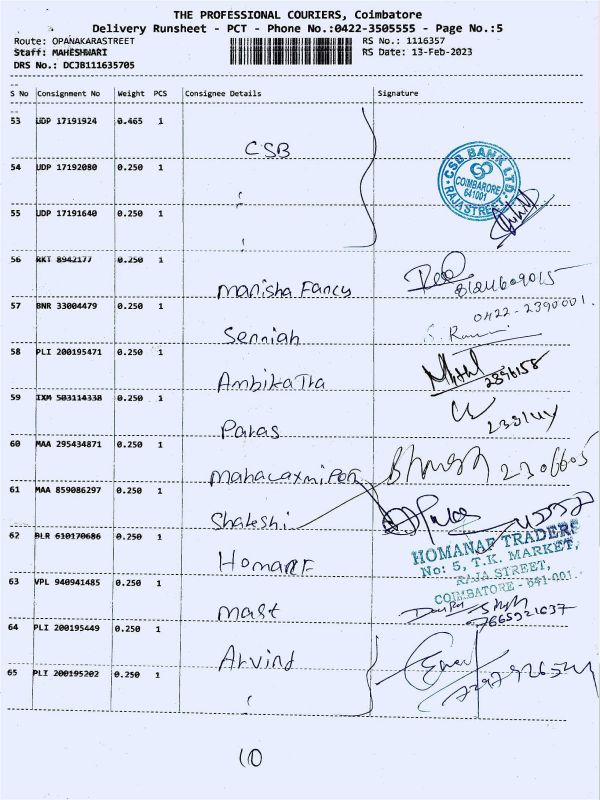 THE PROFESSIONAL COURIERS, Coimbatore
Delivery Runsheet - PCT - Phone No.:0422-3505555 - Page No.:5
Route: OPANAKARASTREET
RS No.: 1116357
Staff: MAHESHWARI
RS Date: 13-Feb-2023
DRS No.: DCJB111635705
S No Consignment No Weight PCS Consignee Details Signature
53 UDP 17191924 0.465 1
CSB
54 UDP 17192080 0.250 1
CSB BANK LTD.
COIMBARORE
641001
RAJA STREET
55 UDP 17191640 0.250 1
56 RKT 8942177 0.250 1
Manisha Fancy
57 BNR 33004479 0.250 1
0422-2390001.
Senniah
58 PLI 200195471 0.250 1
Ambika Tra
2896158
59 IXM 503114338 0.250 1
Paras
60 MAA 295434871 0.250 1
Mahalaxmi
2306605
61 MAA 859086297 0.250 1
Shakeshi
62 BLR 610170686 0.250 1
HOMANAF TRADERS
No: 5, T.K. MARKET,
RAJA STREET,
COIMBATORE - 641-001.
63 VPL 940941485 0.250 1
mast
7665921637
64 PLI 200195449 0.250 1
Arvind
65 PLI 200195202 0.250 1
10